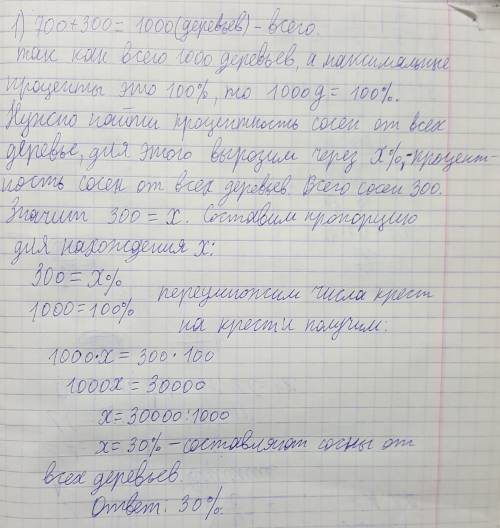 1) 700+300= 1000(деревьев) - всего.
так как всего 1000 деревьев, а максимальные
проценты это 100%, то 1000д = 100%.
Нужно найти процентность сосен от всех
деревье, для этого вырозим через X%,-процент-
ность сосен от всех деревьев. Всего сосен 300.
Значит 300 = x. Составим пропорцию
для нахождения x:
300 = X%
1000 = 100%
перемножим числа крест
на крест и получим:
1000·x = 300·100
1000x = 30000
x = 30000:1000
x = 30% - составляют сосны от
всех деревьев.
Ответ: 30%.